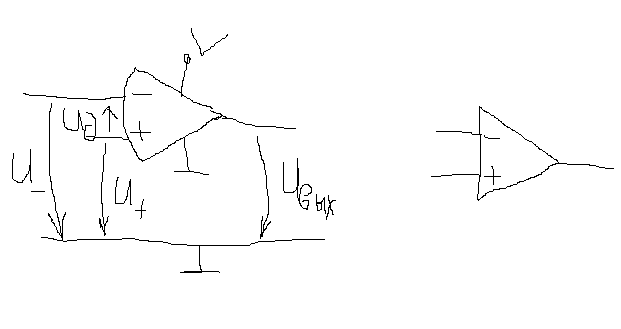 V
−
Uд
+
U−
U+
Uвых
−
+